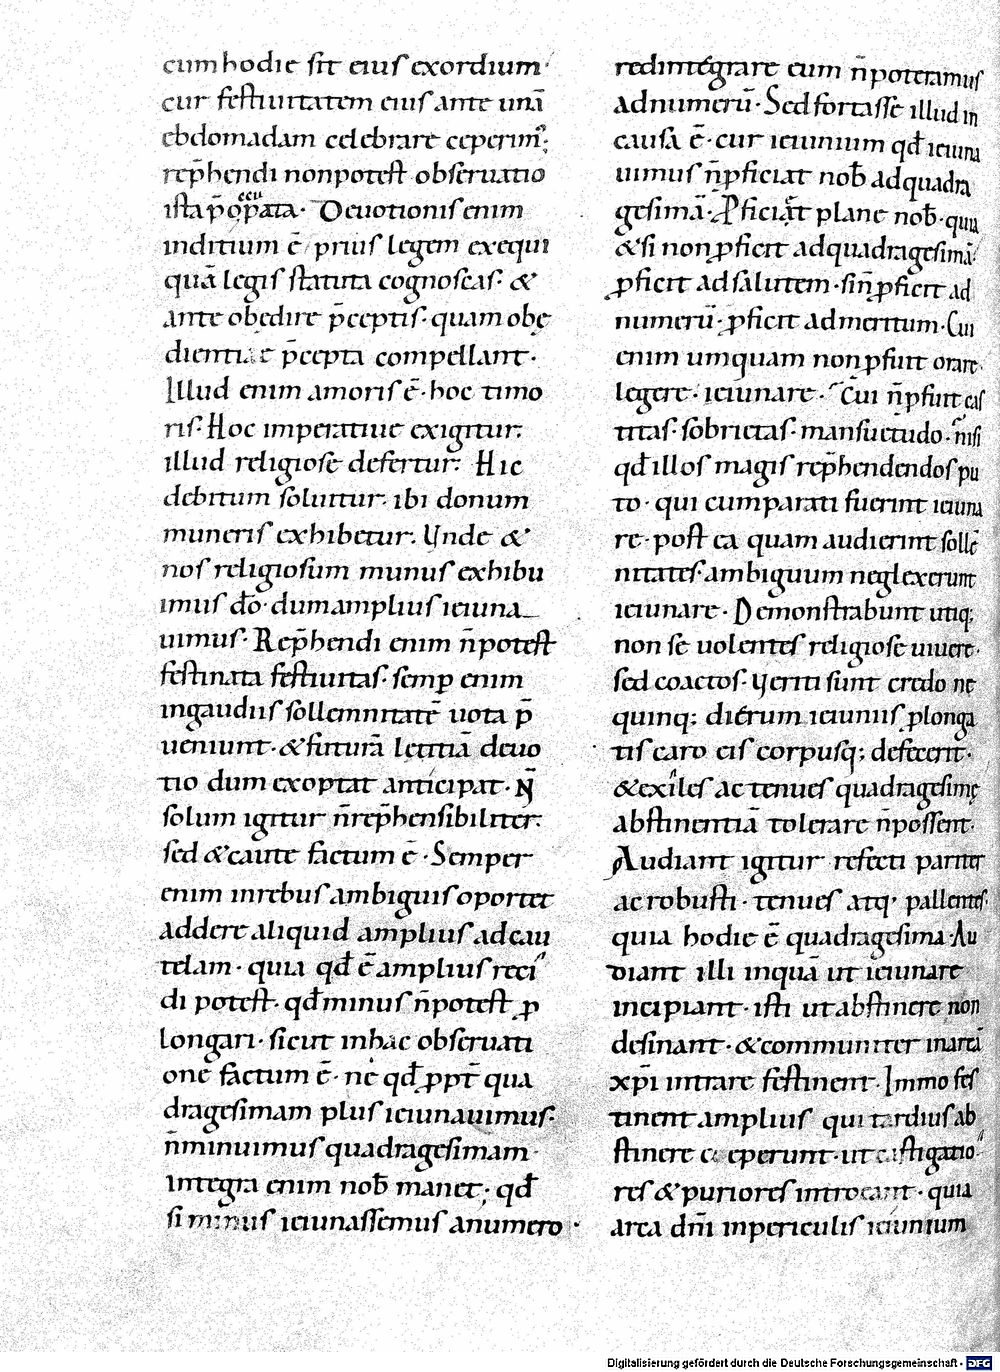 cumhodie sit eius exordium·
cur festiuitatem eius ante unā
ebdomadam celebrare ceperim᷎;
rep̄hendi nonpotest obseruatio
ista
Deuotionis enim
inditium ē prius legem exequi
quā legis statuta cognoscas· &
ante obędire p̄ceptis· quam obę
p̄cepta compellant·
Illud enim amoris ē· hoc timo
ris· Hoc imperatiue exigitur·
illud religiose defertur· Hic
debitum soluitur· ibi donum
muneris exhibetur. Unde &
nos religiosum munus exhibu
imus dō· dumamplius ieiuna
uimus· Rep̄hendi enim n̄potest
festinata festiuitas· semꝑ enim
ingaudiis sollemnitatē uota p̄
ueniunt· &futurā letitiā deuo
tio dum exoptat anticipat· N̄
solum igitur n̄rep̄hensibiliter·
sed &caute factum ē· Semper
enim inrebus ambiguis oportet
addere aliquid amplius adcau
telam· quia qđ ē amplius reci
di potest· qđminus n̄potest ꝓ
longari· sicut inhac obseruati
one factum ē· ne qđ ꝓpt̄ qua
dragesimam plus ieiunauimus·
n̄minuimus quadragesimam·
integra enim nob̄ manet; qđ
si minus ieiunassemus anumero·
redintegrare eum n̄poteramus
adnumerū· Sedfortasse illud in
causa ē· cur ieiunium qđ ieiuna
uimus n̄ꝓficiat nob̄ adquadra
gesimā· Ꝓficiat plane nob̄· quia
&si non ꝓficit adquadragesimā·
ꝓficit adsalutem· sin̄ ꝓficit ad
numerū· ꝓficit admeritum· Cui
enim umquam non ꝓfuit orare·
legere· ieiunare· Cui n̄ꝓfuit cas
titas· sobrietas· mansuetudo· nisi
qđ illos magis rep̄hendendos pu
to· qui cumparati fuerint ieiuna
re· post ea quam audierint sollē
nitates· ambiguum neglexerunt
ieiunare· Demonstrabunt utiq;
non se uolentes religiose uiuere·
sed coactos· Ueriti sunt credo ne
quinq; dierum ieiuniis ꝓlonga
tis caro eis corpusq; defecerit·
&exiles ac tenues quadragesimę
abstinentiā tolerare n̄possent·
Audiant igitur refecti pariter
ac robusti· tenues atq· pallentes·
quia hodie ē quadragesima· Au
diant illi inquā ut ieiunare
incipiant· isti utabstinere non
desinant· &communiter inarcā
xp̄i intrare festinent· Immo fes
tinent amplius qui tardius ab
stinere ceperunt· ut castigatio
res &puriores introeant· quia
arca dn̄i inpericulis ieiunium
Digitalisierung gefördert durch die Deutsche Forschungsgemeinschaft - DFG